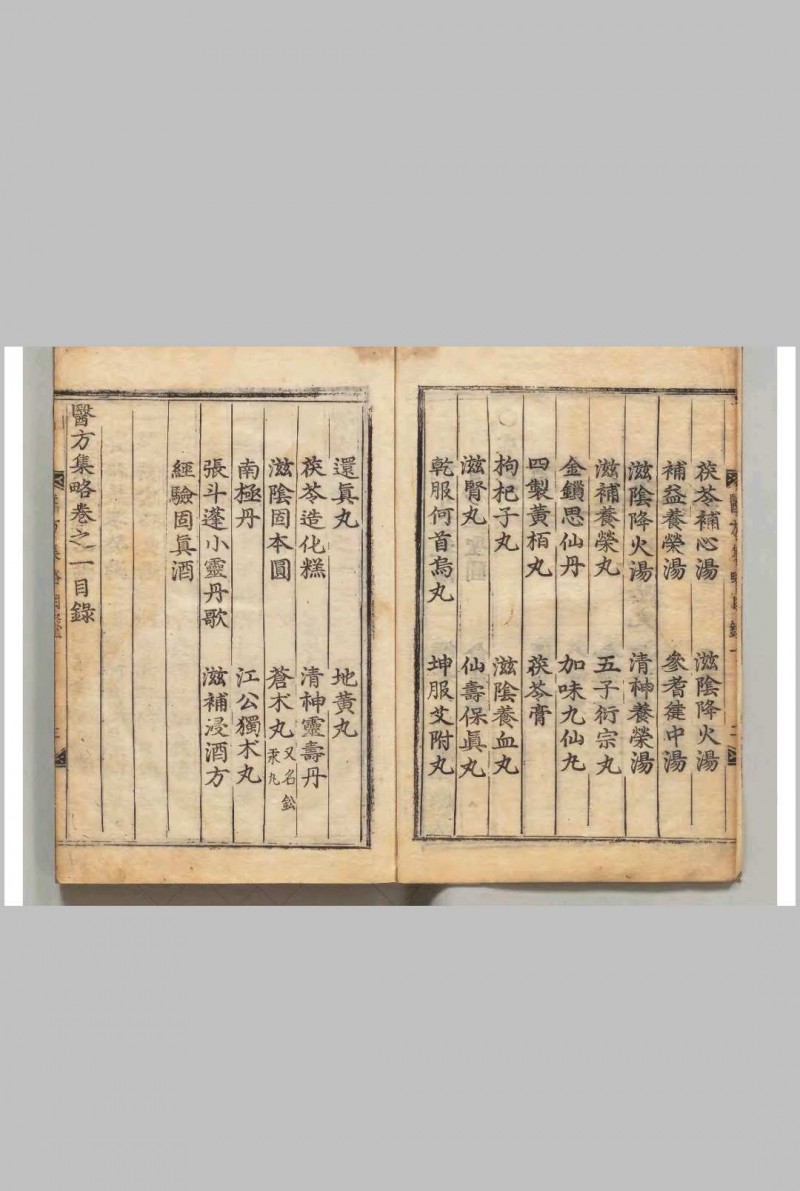 茯苓補心湯　滋陰降火湯
補益養榮湯　參耆健中湯
滋陰降火湯　清神養榮湯
滋補養榮丸　五子衍宗丸
金鎖思仙丹　加味九仙丸
四製黃栢丸　茯苓膏
枸杞子丸　滋陰養血丸
滋腎丸　仙壽保眞丸
乾服何首烏丸　坤服艾附丸
還眞丸　地黃丸
茯苓造化糕　清神靈壽丹
滋陰固本圓　蒼朮丸又名鉛汞丸
南極丹　江公獨朮丸
張斗蓬小靈丹歌　滋補浸酒方
經驗固眞酒
醫方集略卷之一目錄